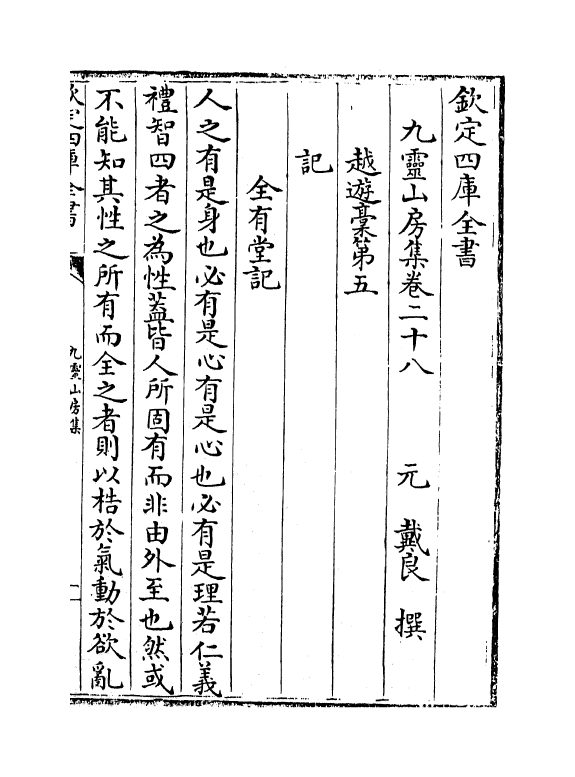 欽定四庫全書
九靈山房集卷二十八　元　戴良　撰
越遊藁第五
記
全有堂記
人之有是身也必有是心有是心也必有是理若仁義
禮智四者之為性葢皆人所固有而非由外至也然或
不能知其性之所有而全之者則以梏於氣動於欲亂
欽定四庫全書
九靈山房集
一